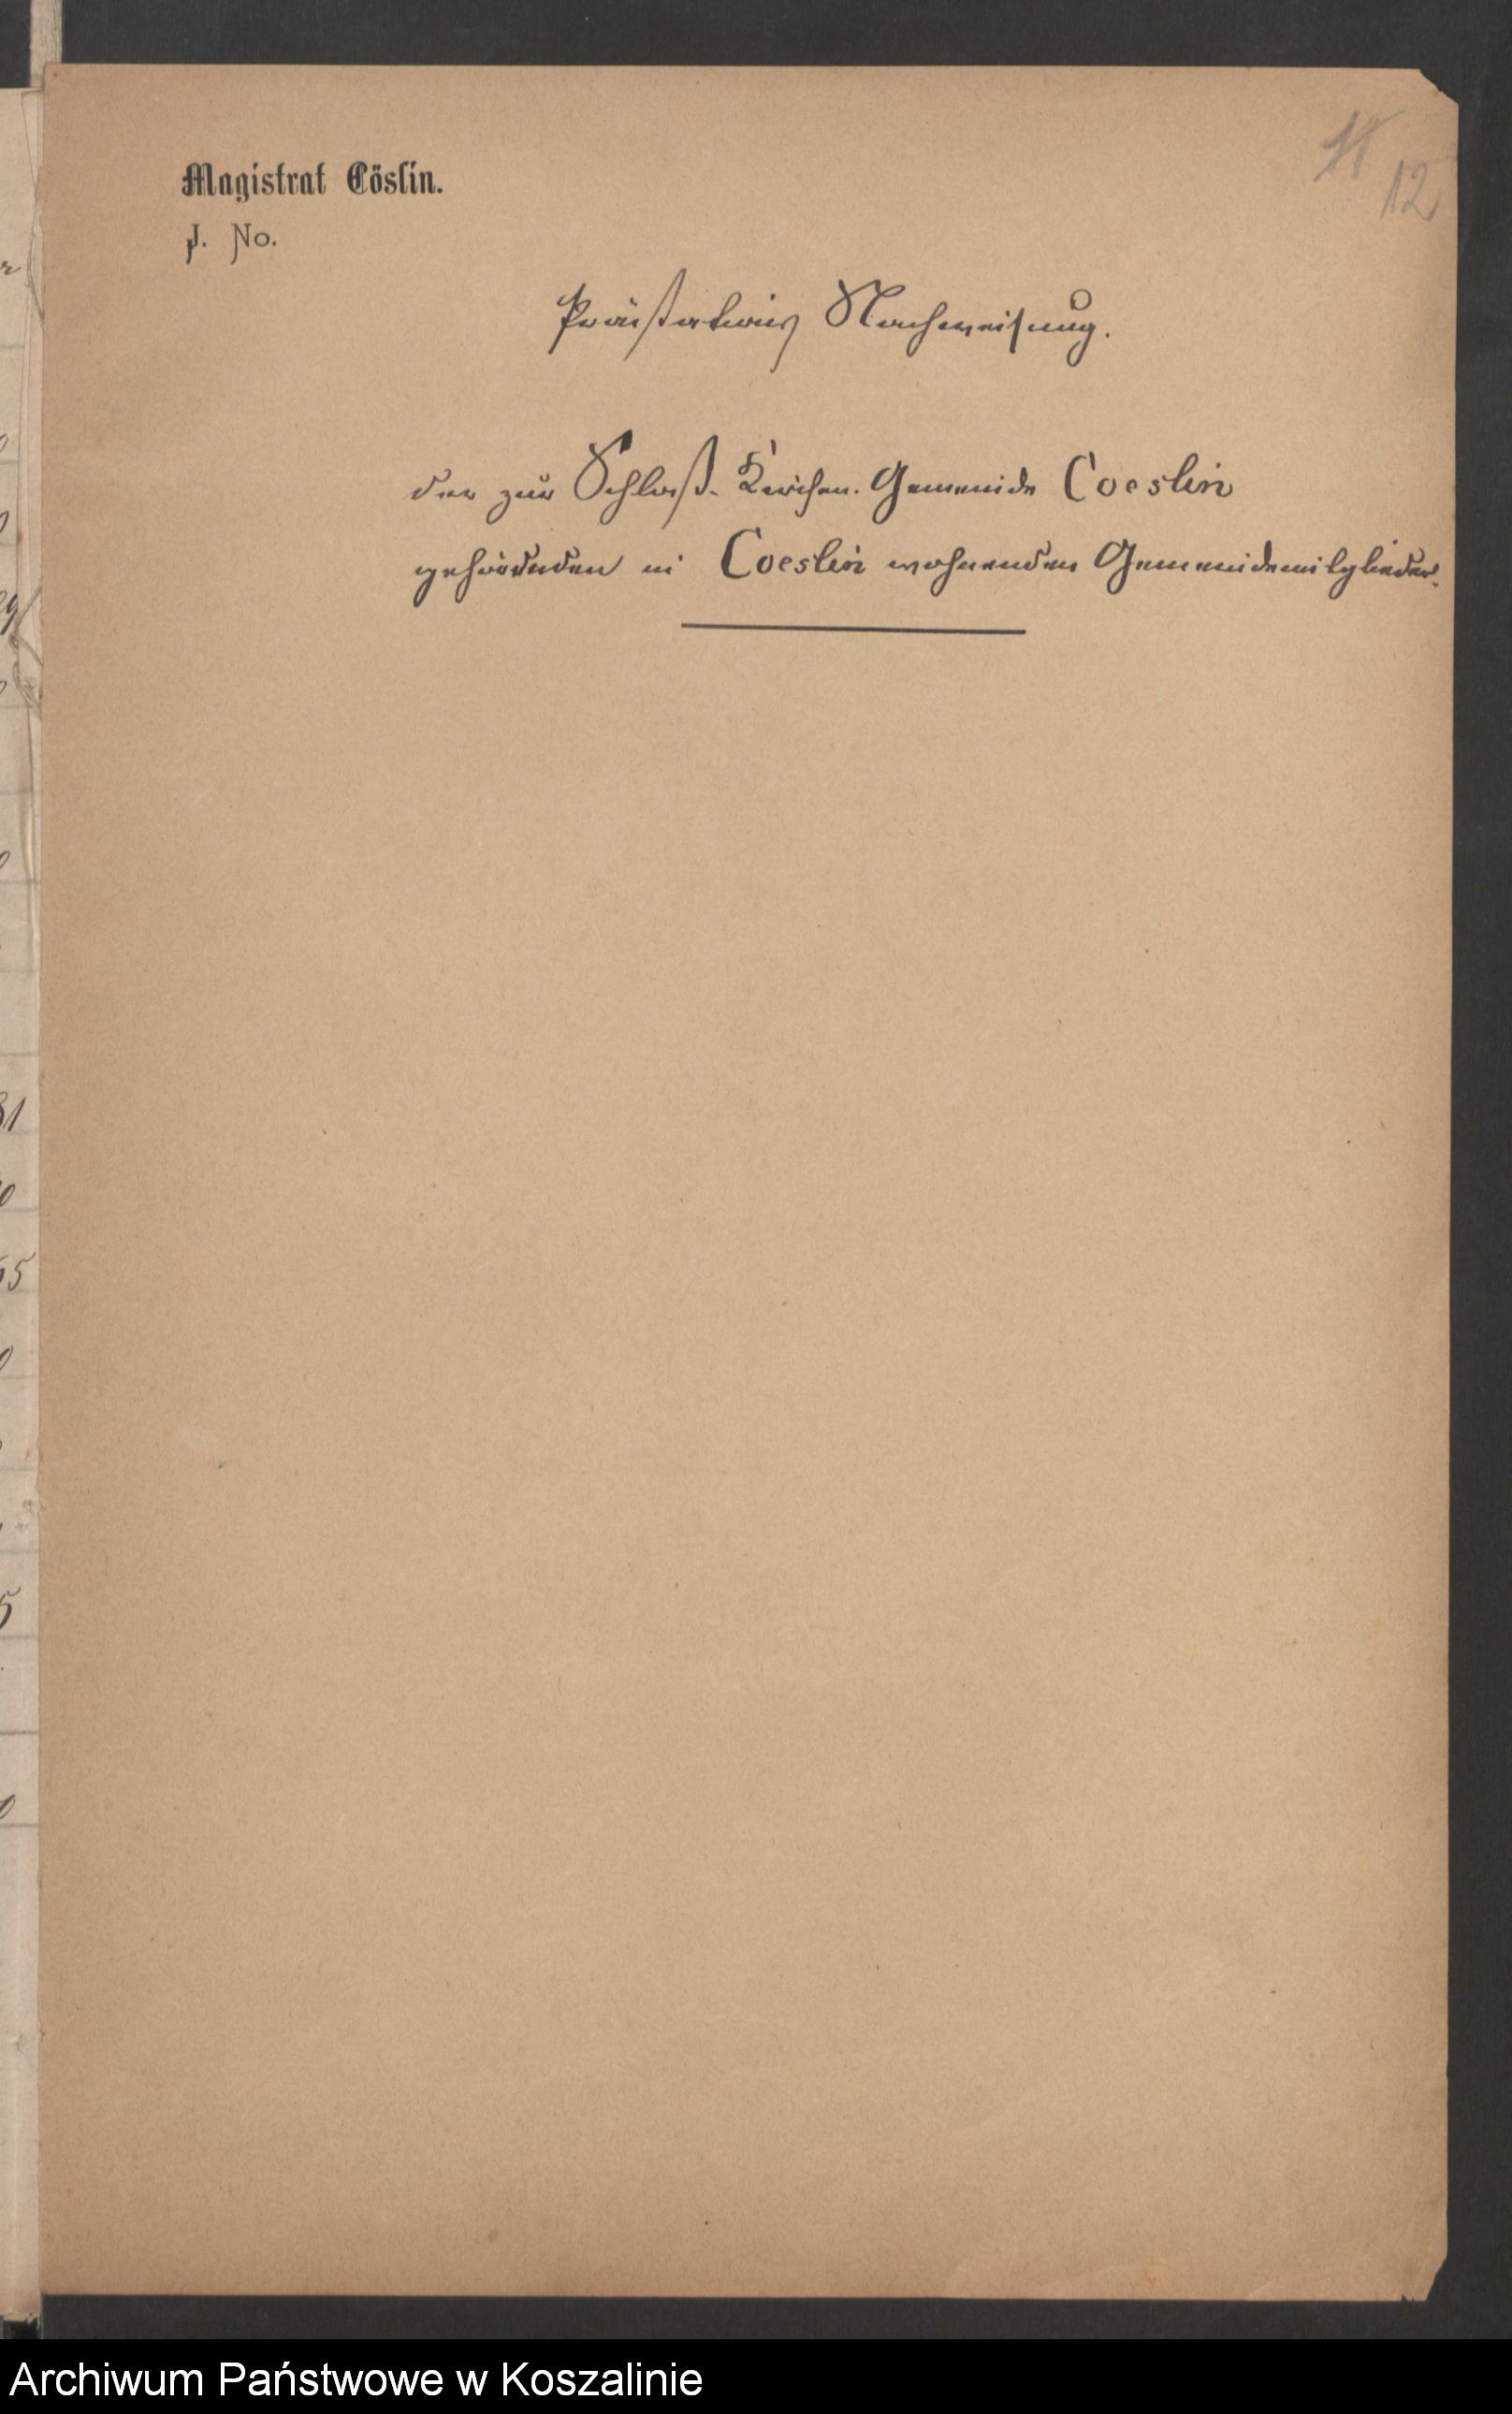 Magistrat Cöslin.
J. No.
11
12
Prästations Nachweisung.
der zur Schloß-Kirchen-Gemeinde Coeslin
gehörenden in Coeslin wohnenden Gemeindemitglieder.
29
31
5
Archiwum Państwowe w Koszalinie